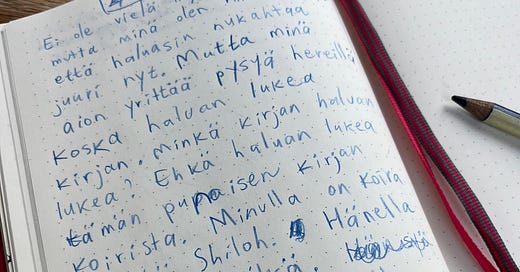 Ei ole vielä
mutta minä olen
että haluasin nukahtaa
juuri nyt. Mutta minä
aion yrittää pysyä hereillä
koska haluan lukea
kirjan. Minkä kirjan haluan
lukea? Ehkä haluan lukea
tämän punaisen kirjan
koirista. Minulla on koira
Shiloh. Hänella